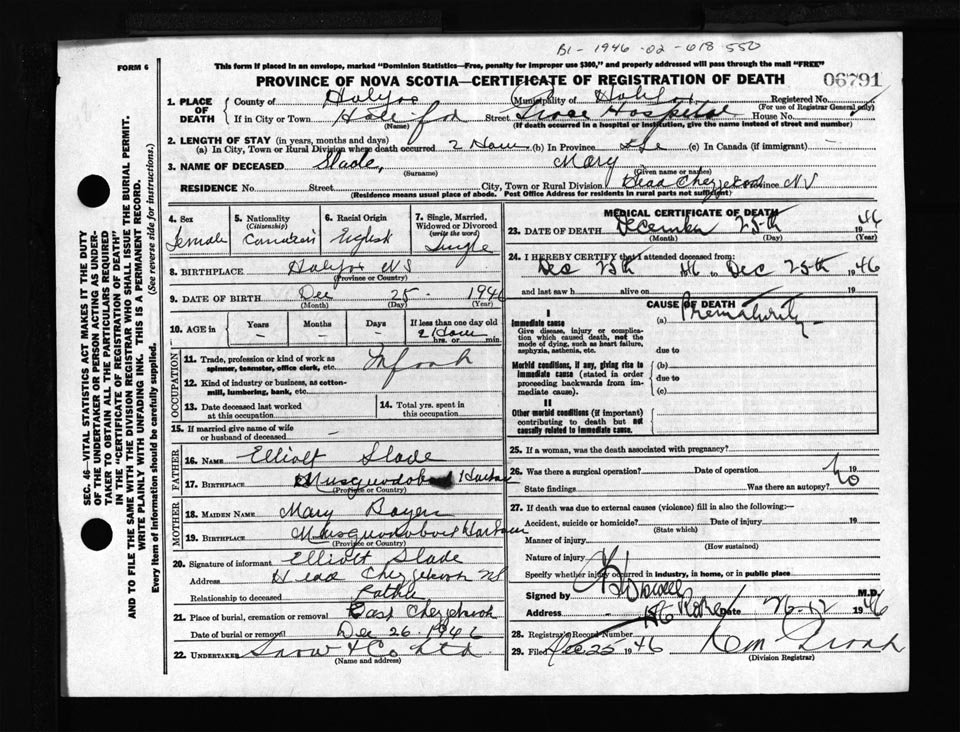 B1- 1946-02-018550
FORM 6
This form if placed in an envelope, marked "Dominion Statistics—Free, penalty for improper use $300," and properly addressed will pass through the mail "FREE"
PROVINCE OF NOVA SCOTIA—CERTIFICATE OF REGISTRATION OF DEATH
06791
SEC. 46—VITAL STATISTICS ACT MAKES IT THE DUTY
OF THE UNDERTAKER OR PERSON ACTING AS UNDER-
TAKER TO OBTAIN ALL THE PARTICULARS REQUIRED
IN THE "CERTIFICATE OF REGISTRATION OF DEATH"
AND TO FILE THE SAME WITH THE DIVISION REGISTRAR WHO SHALL ISSUE THE BURIAL PERMIT.
WRITE PLAINLY WITH UNFADING INK. THIS IS A PERMANENT RECORD.
Every item of information should be carefully supplied. (See reverse side for instructions.)
1. PLACE OF DEATH
County of Halifax Municipality of Halifax Registered No.
(For use of Registrar General only)
If in City or Town Halifax Street Grace Hospital House No.
(Name) (If death occurred in a hospital or institution, give the name instead of street and number)
2. LENGTH OF STAY (in years, months and days)
(a) In City, Town or Rural Division where death occurred 2 Hours (b) In Province Life (c) In Canada (if immigrant) —
3. NAME OF DECEASED Slade, Mary
(Surname) (Given name or names)
RESIDENCE No. Street City, Town or Rural Division Head Chezzetcook Province NS
(Residence means usual place of abode. Post Office Address for residents in rural parts not sufficient)
4. Sex Female
5. Nationality (Citizenship) Canadian
6. Racial Origin English
7. Single, Married, Widowed or Divorced (write the word) Single
8. BIRTHPLACE Halifax NS
(Province or Country)
9. DATE OF BIRTH Dec 25 1946
(Month) (Day) (Year)
10. AGE in Years — Months — Days — If less than one day old 2 Hours
hrs. or min.
OCCUPATION
11. Trade, profession or kind of work as spinner, teamster, office clerk, etc. Infant
12. Kind of industry or business, as cotton-mill, lumbering, bank, etc.
13. Date deceased last worked at this occupation
14. Total yrs. spent in this occupation
15. If married give name of wife or husband of deceased —
FATHER
16. NAME Elliott Slade
17. BIRTHPLACE Musquodoboit Harbour
(Province or Country)
MOTHER
18. MAIDEN NAME Mary Bayers
19. BIRTHPLACE Musquodoboit Harbour
(Province or Country)
20. Signature of informant Elliott Slade
Address Head Chezzetcook NS
Relationship to deceased Father
21. Place of burial, cremation or removal East Chezzetcook
Date of burial or removal Dec 26 1946
22. UNDERTAKER Snow & Co Ltd
(Name and address)
MEDICAL CERTIFICATE OF DEATH
23. DATE OF DEATH December 25th 1946
(Month) (Day) (Year)
24. I HEREBY CERTIFY that I attended deceased from:
Dec 25th 46 to Dec 25th 1946
and last saw h alive on 19
CAUSE OF DEATH
I
Immediate cause
Give disease, injury or complication which caused death, not the mode of dying, such as heart failure, asphyxia, asthenia, etc.
(a) Prematurity
due to
Morbid conditions, if any, giving rise to immediate cause (stated in order proceeding backwards from immediate cause).
(b)
due to
(c)
II
Other morbid conditions (if important) contributing to death but not causally related to immediate cause.
25. If a woman, was the death associated with pregnancy?
26. Was there a surgical operation? Date of operation 19
State findings Was there an autopsy? No
27. If death was due to external causes (violence) fill in also the following:—
Accident, suicide or homicide? Date of injury 19
(State which)
Manner of injury
(How sustained)
Nature of injury
Specify whether injury occurred in industry, in home, or in public place
Signed by M.D.
Address Date 26-12 1946
28. Registrar's Record Number
29. Filed Dec 25 1946
(Division Registrar)